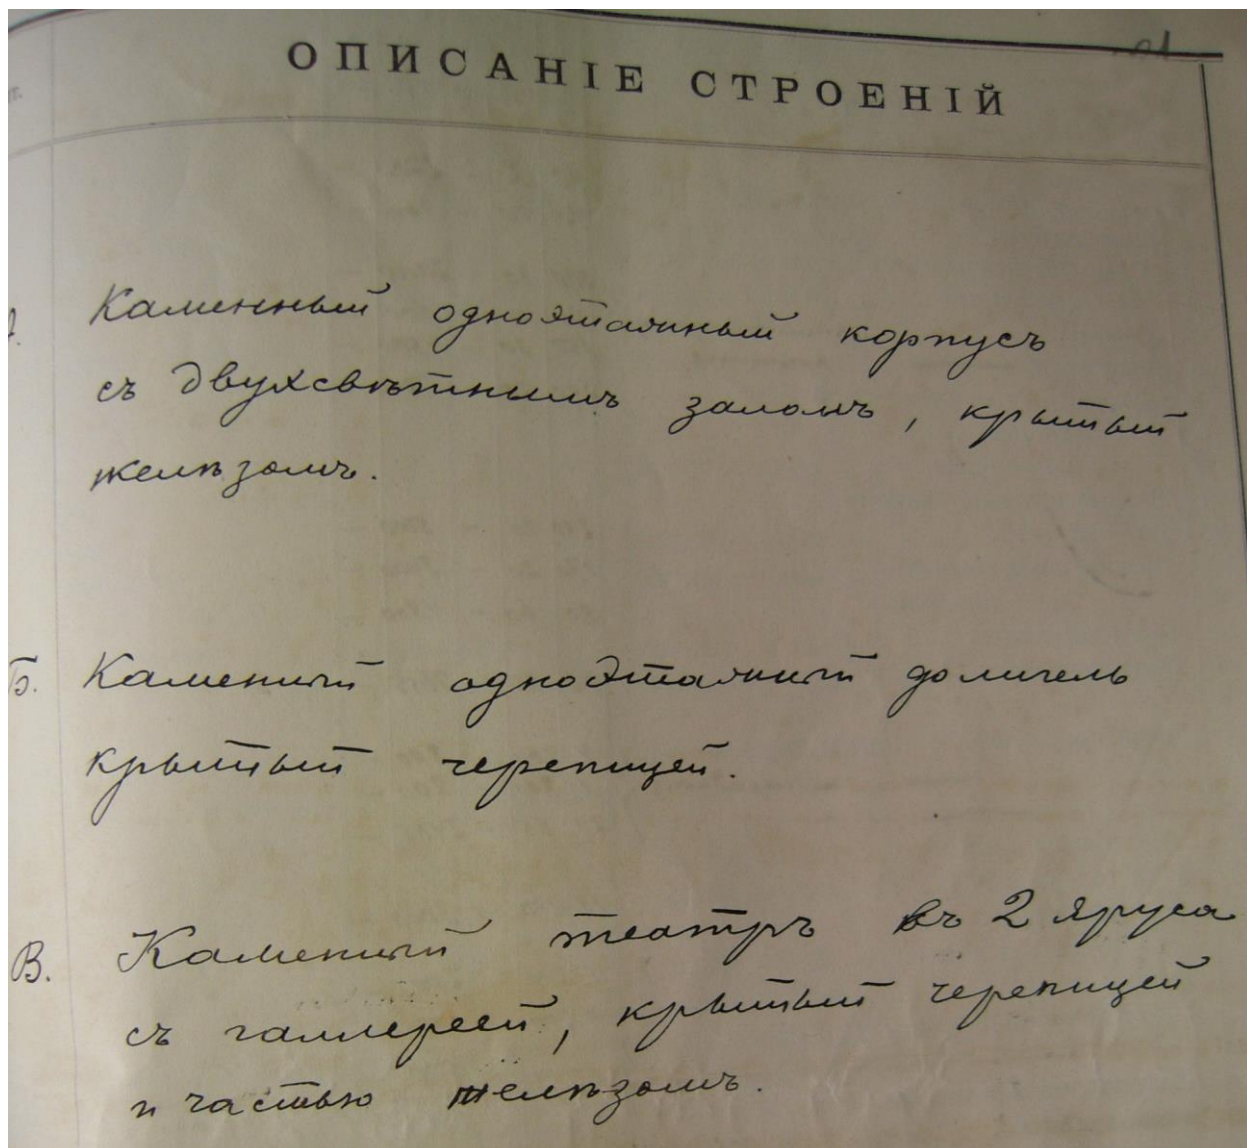 ОПИСАНІЕ СТРОЕНІЙ
Каменный одноэтажный корпусъ
съ двухсвѣтнымъ заломъ, крытый
желѣзомъ.
Б. Каменный одноэтажный
крытый черепицей.
В. Каменный театръ въ 2 яруса
съ галлереей, крытый черепицей
и частью желѣзомъ.